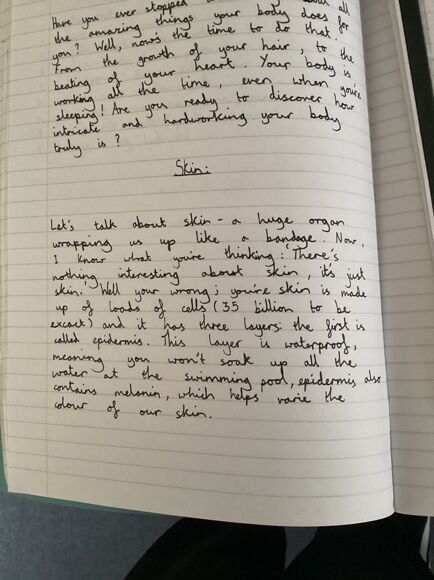 Have you ever stopped all
the amazing things your body does for
you? Well, now's the time to do that.
From the growth of your hair, to the
beating of your heart. Your body is
working all the time, even when you're
sleeping! Are you ready to discover how
intricate and hardworking your body
truly is?
Skin:
Let's talk about skin - a huge organ
wrapping us up like a bandage. Now,
I know what you're thinking: 'There's
nothing interesting about skin, it's just
skin.' Well your wrong; you're skin is made
up of loads of cells (35 billion to be
excact) and it has three layers: the first is
called epidermis. This layer is waterproof,
meaning you won't soak up all the
water at the swimming pool, epidermis also
contains melanin, which helps varie the
colour of our skin.